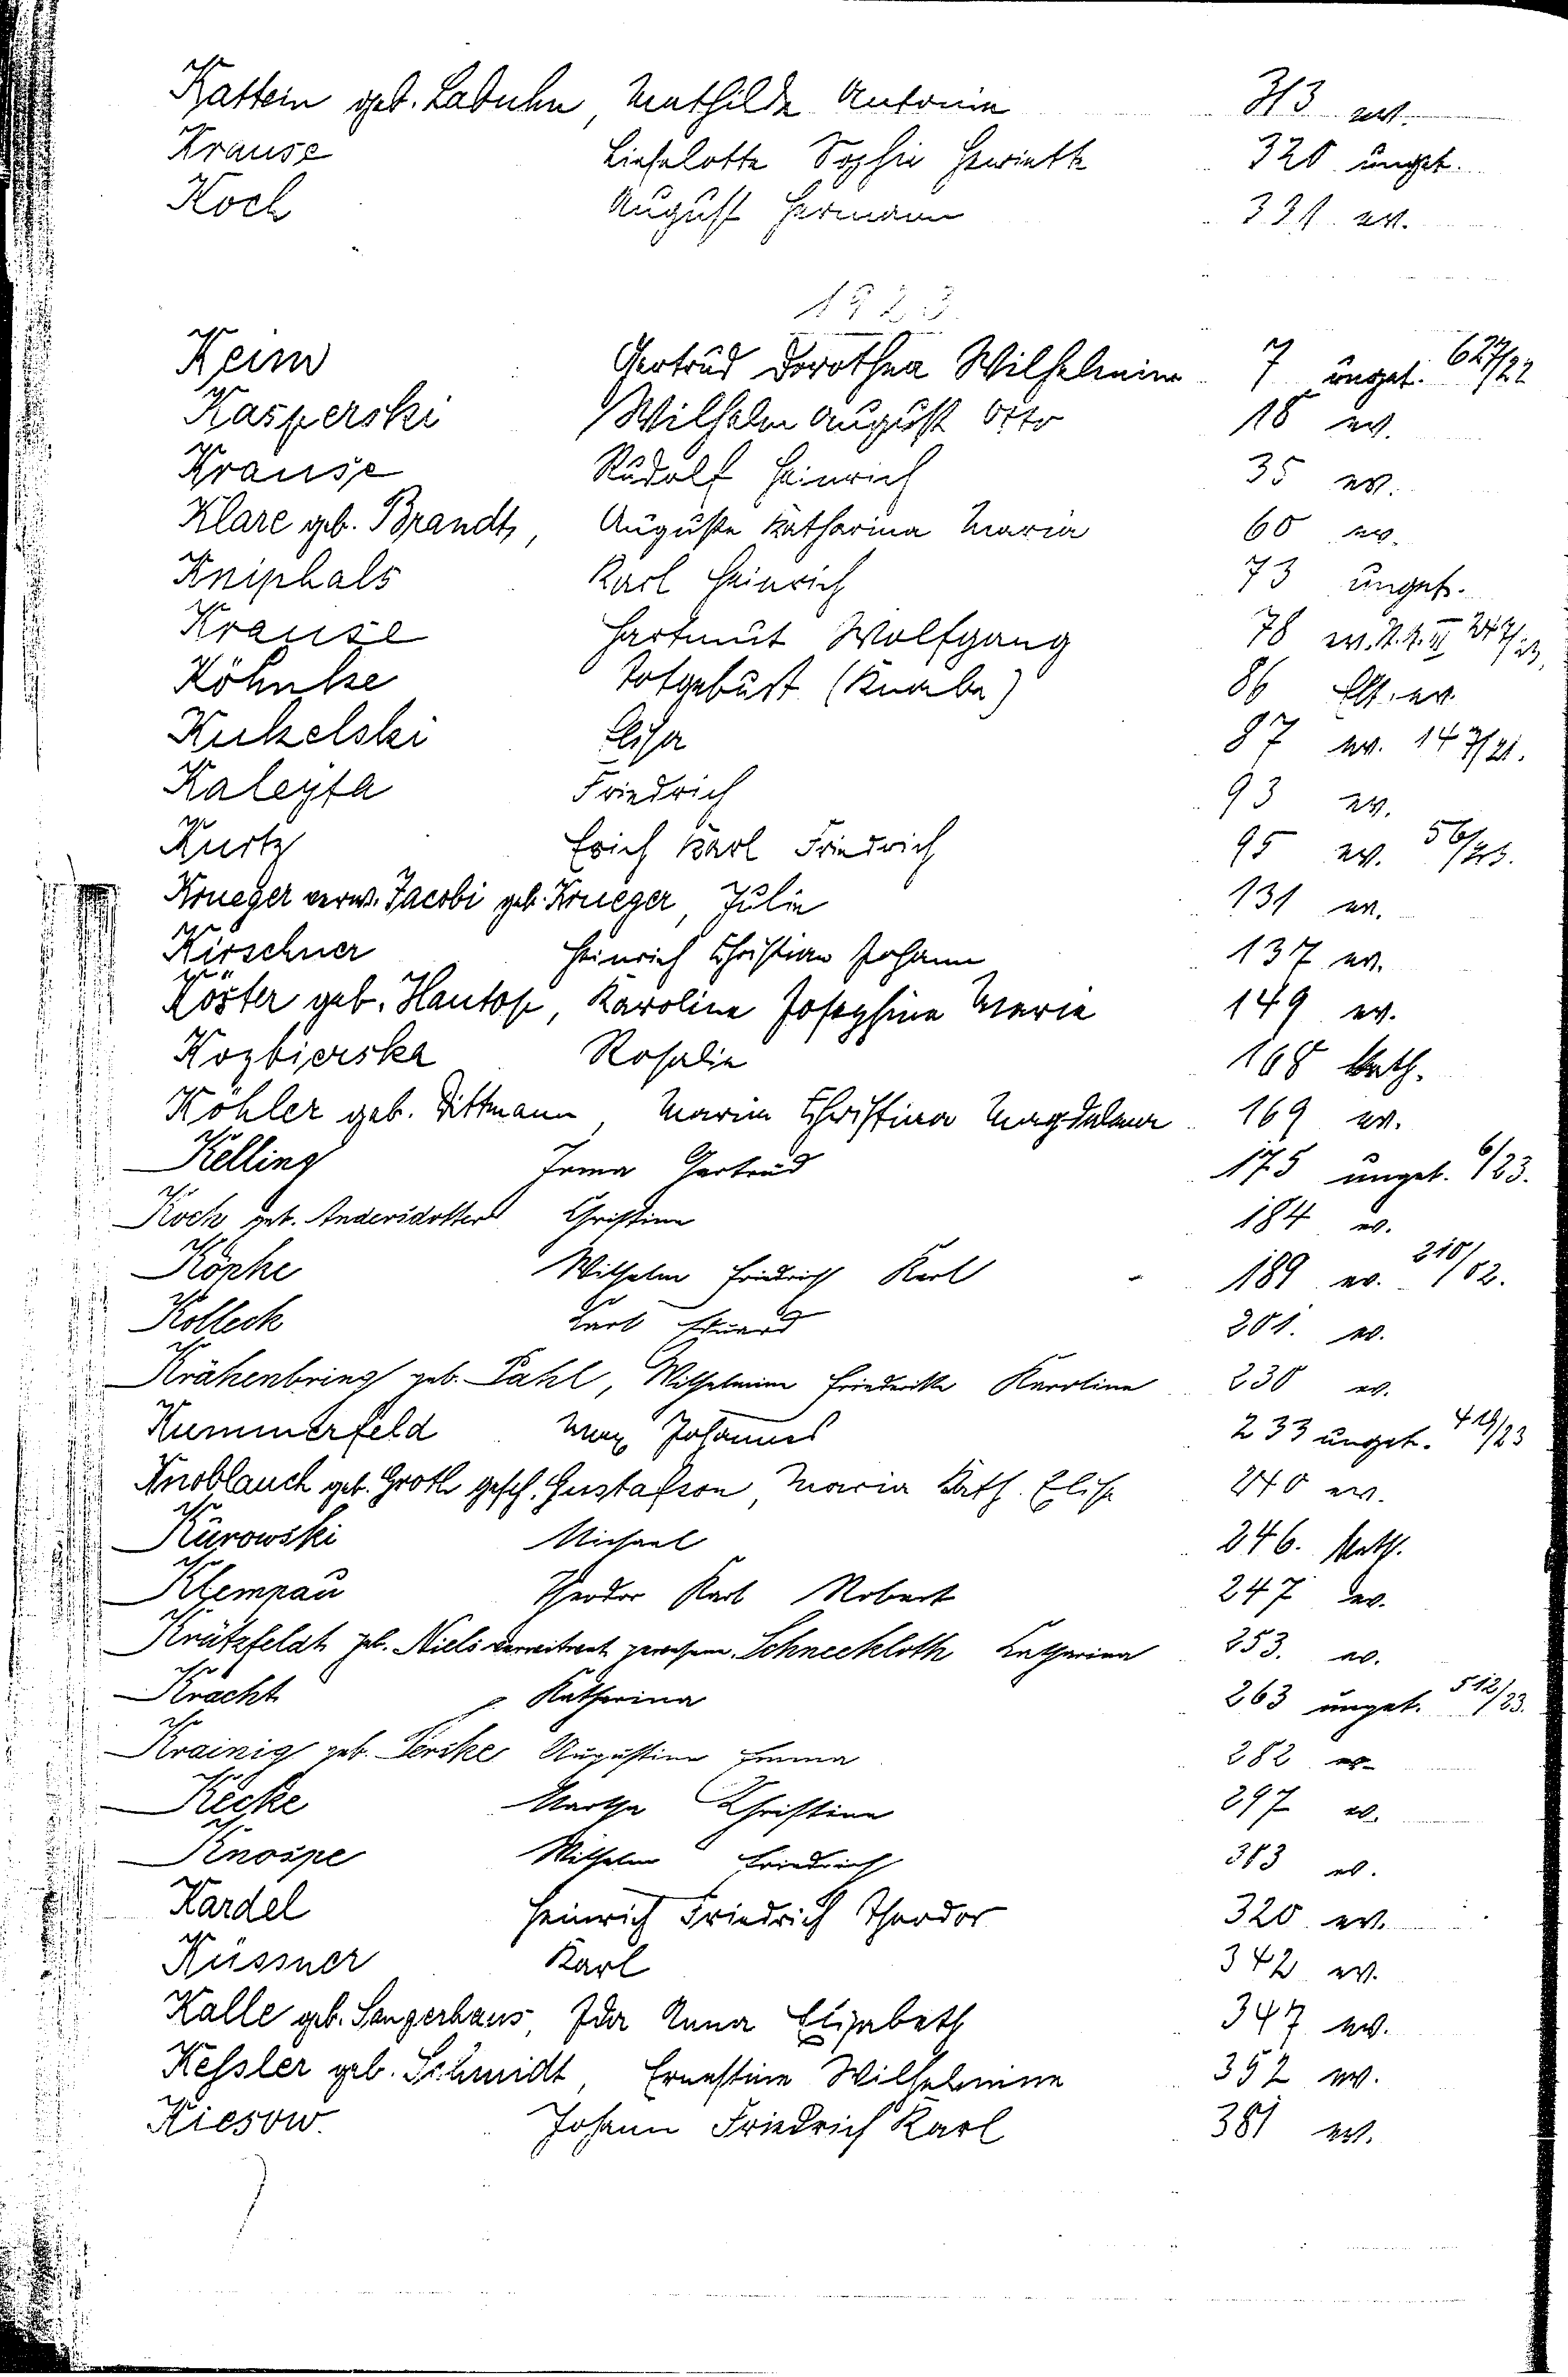 Kattein geb. Labuhn, Mathilde Antonie 313 ev.
Krause Lieselotte Sophie Henriette 320 unget.
Koch August Hermann 331 ev.
1923.
Keim Gertrud Dorothea Wilhelmine 7 unget. 627/22
Kasperski Wilhelm August Otto 18 ev.
Krause Rudolf Heinrich 35 ev.
Klare geb. Brandt, Auguste Katharina Maria 60 ev.
Kniphals Karl Heinrich 73 unget.
Krause Hartmut Wolfgang 78 ev. 247/23.
Köhnke Totgeburt (Knabe) 86 Elt. ev.
Kukelski Elisa 87 ev. 147/21.
Kaleyta Friedrich 93 ev.
Kurtz Erich Karl Friedrich 95 ev. 56/23.
Krueger verw. Jacobi geb. Krueger, Julie 131 ev.
Kirschner Heinrich Christian Johann 137 ev.
Köster geb. Hautop, Karoline Josephine Marie 149 ev.
Kozbierska Rosalie 168 kath.
Köhler geb. Dittmann, Maria Christina Magdalena 169 ev.
Kelling Irma Gertrud 175 unget. 6/23.
Koch geb. Andersdotter Christine 184 ev.
Köpke Wilhelm Friedrich Karl 189 ev. 210/02.
Kolleck Karl Eduard 201. ev.
Krähenbring geb. Pahl, Wilhelmine Friederike Karoline 230 ev.
Kummerfeld Max Johannes 233 unget. 419/23
Knoblauch geb. Groth gesch. Gustafson, Maria Kath. Elise 240 ev.
Kurowski Michael 246. kath.
Klempau Theodor Karl Robert 247 ev.
Krützfeldt geb. Niels verwitwet gewesene Schneekloth Katharina 253. ev.
Kracht Katharina 263 unget. 512/23.
Krainig geb. Perske Augustine Emma 282 ev.
Kecke Martha Christine 297 ev.
Knospe Wilhelm Friedrich 313 ev.
Kardel Heinrich Friedrich Theodor 320 ev.
Küssner Karl 342 ev.
Kalle geb. Sangerhaus, Ida Anna Elisabeth 347 ev.
Kessler geb. Schmidt, Ernestine Wilhelmine 352 ev.
Kiesow. Johann Friedrich Karl 381 ev.